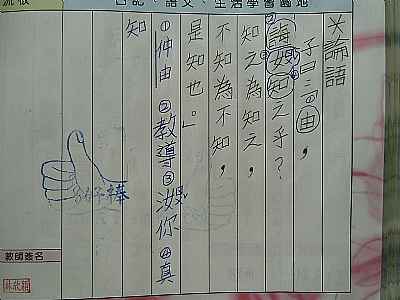 日記、語文、生活學習園地
※論語
子曰:「①由,
②誨③女④知之乎?
知之為知之,
不知為不知,
是知也。」
①仲由 ②教導 ③汝你 ④真
知
好棒
教師簽名